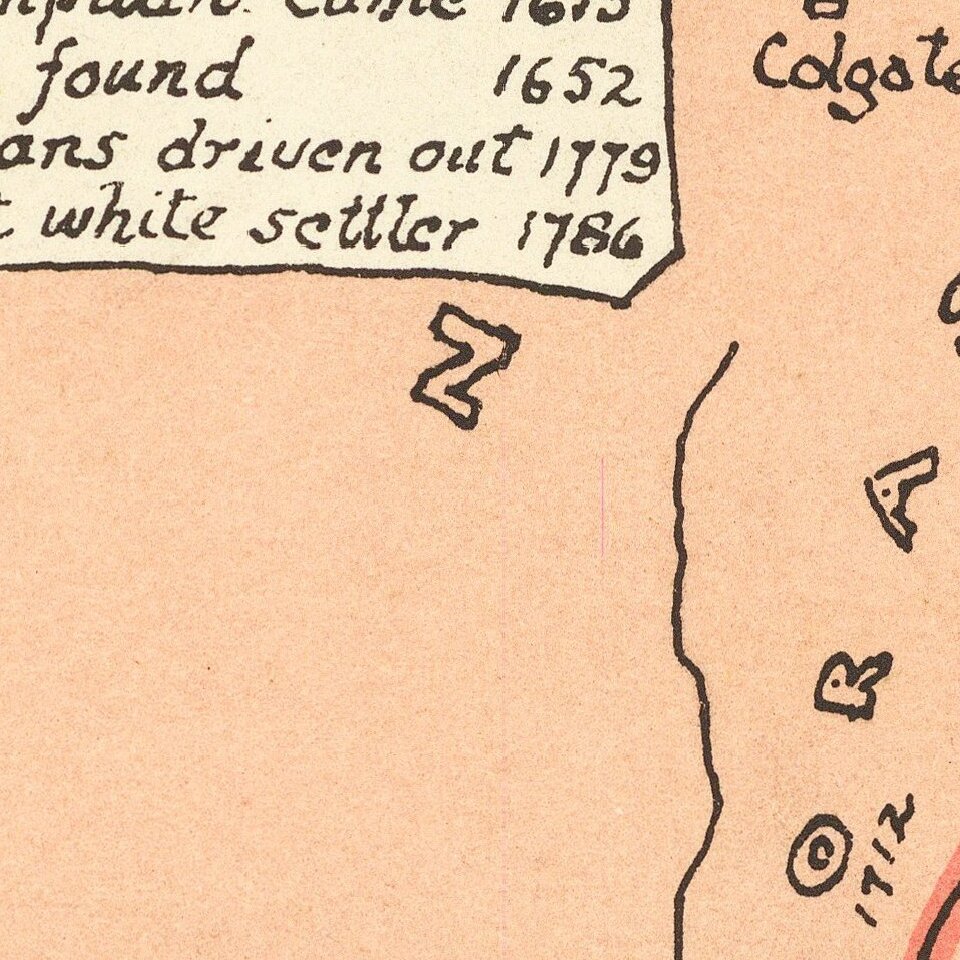 Came 1615
found 1652
ans driven out 1779
t white settler 1786
Colgate
N
A
R
O
1712